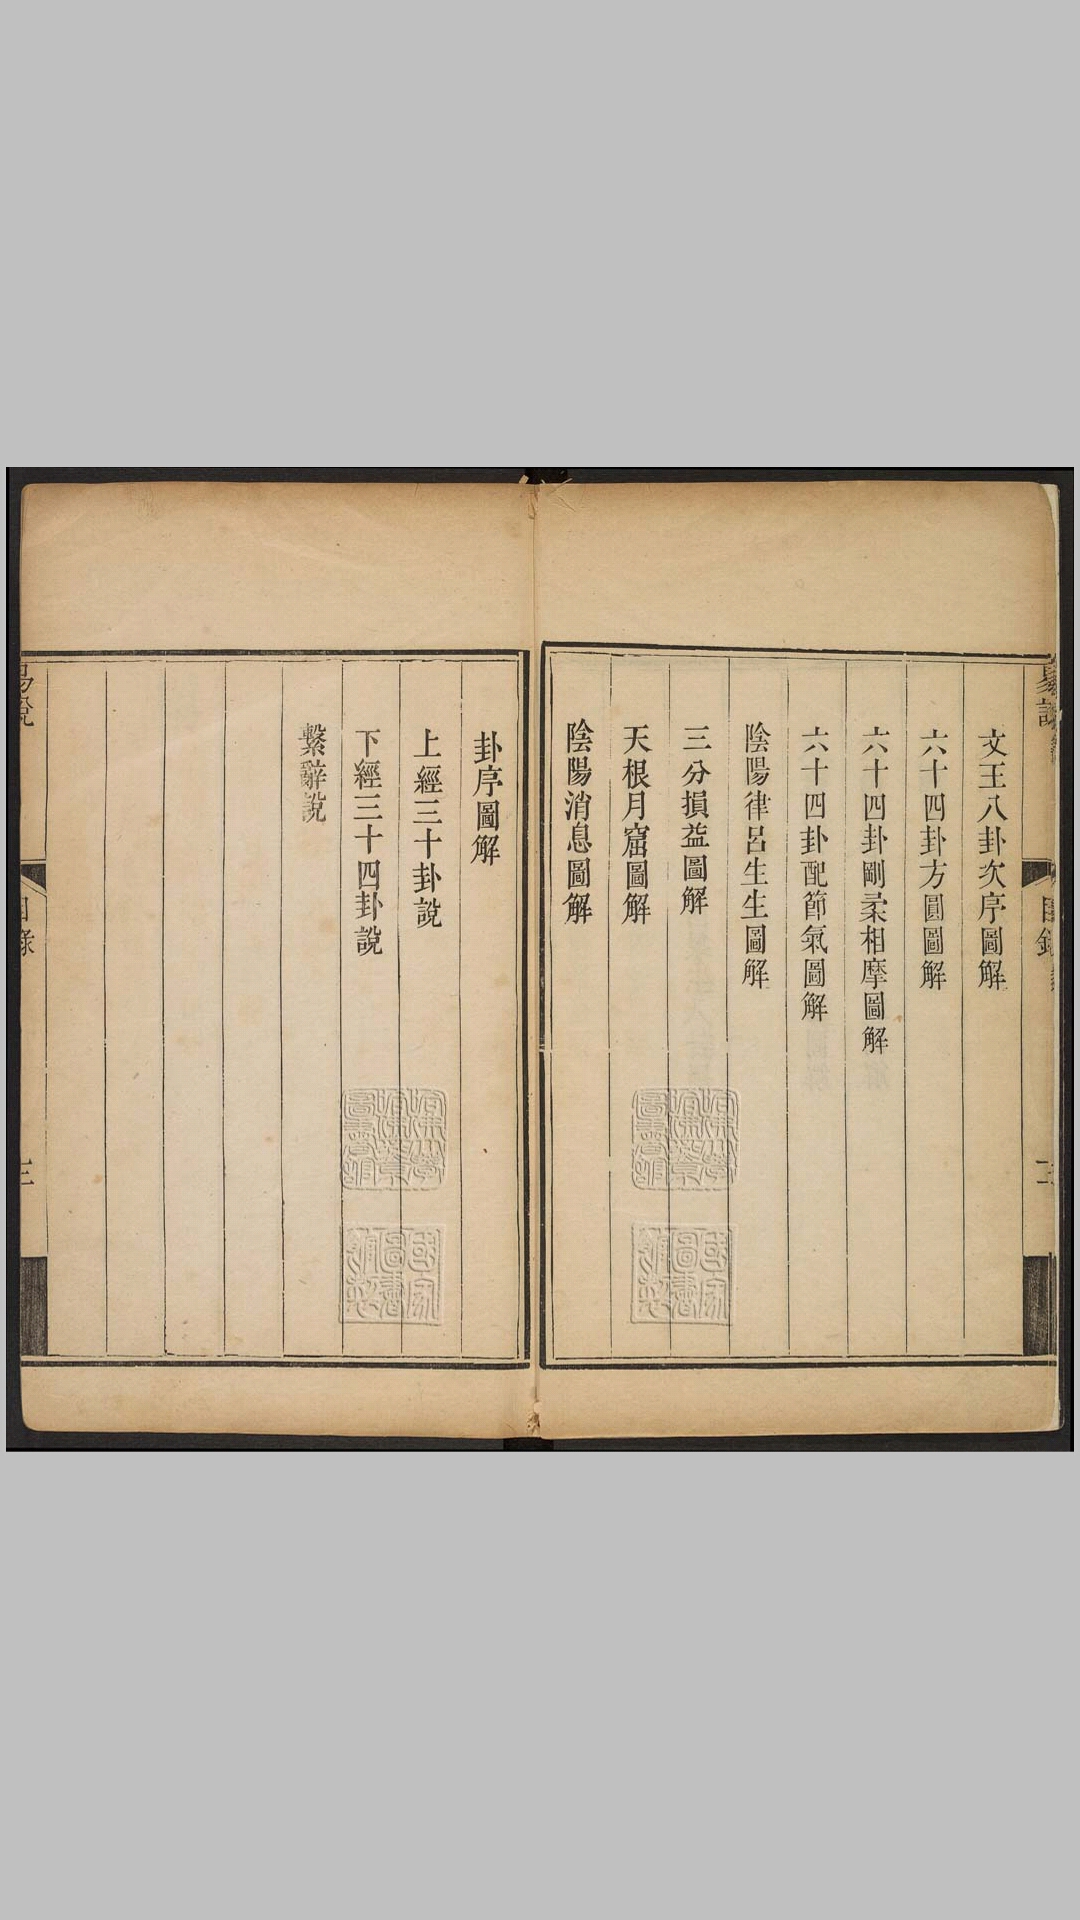 文王八卦次序圖解
六十四卦方圓圖解
六十四卦剛柔相摩圖解
六十四卦配節氣圖解
陰陽律呂生生圖解
三分損益圖解
天根月窟圖解
陰陽消息圖解
卦序圖解
上經三十卦說
下經三十四卦說
繫辭說
易說
目錄
三
國家圖書館製